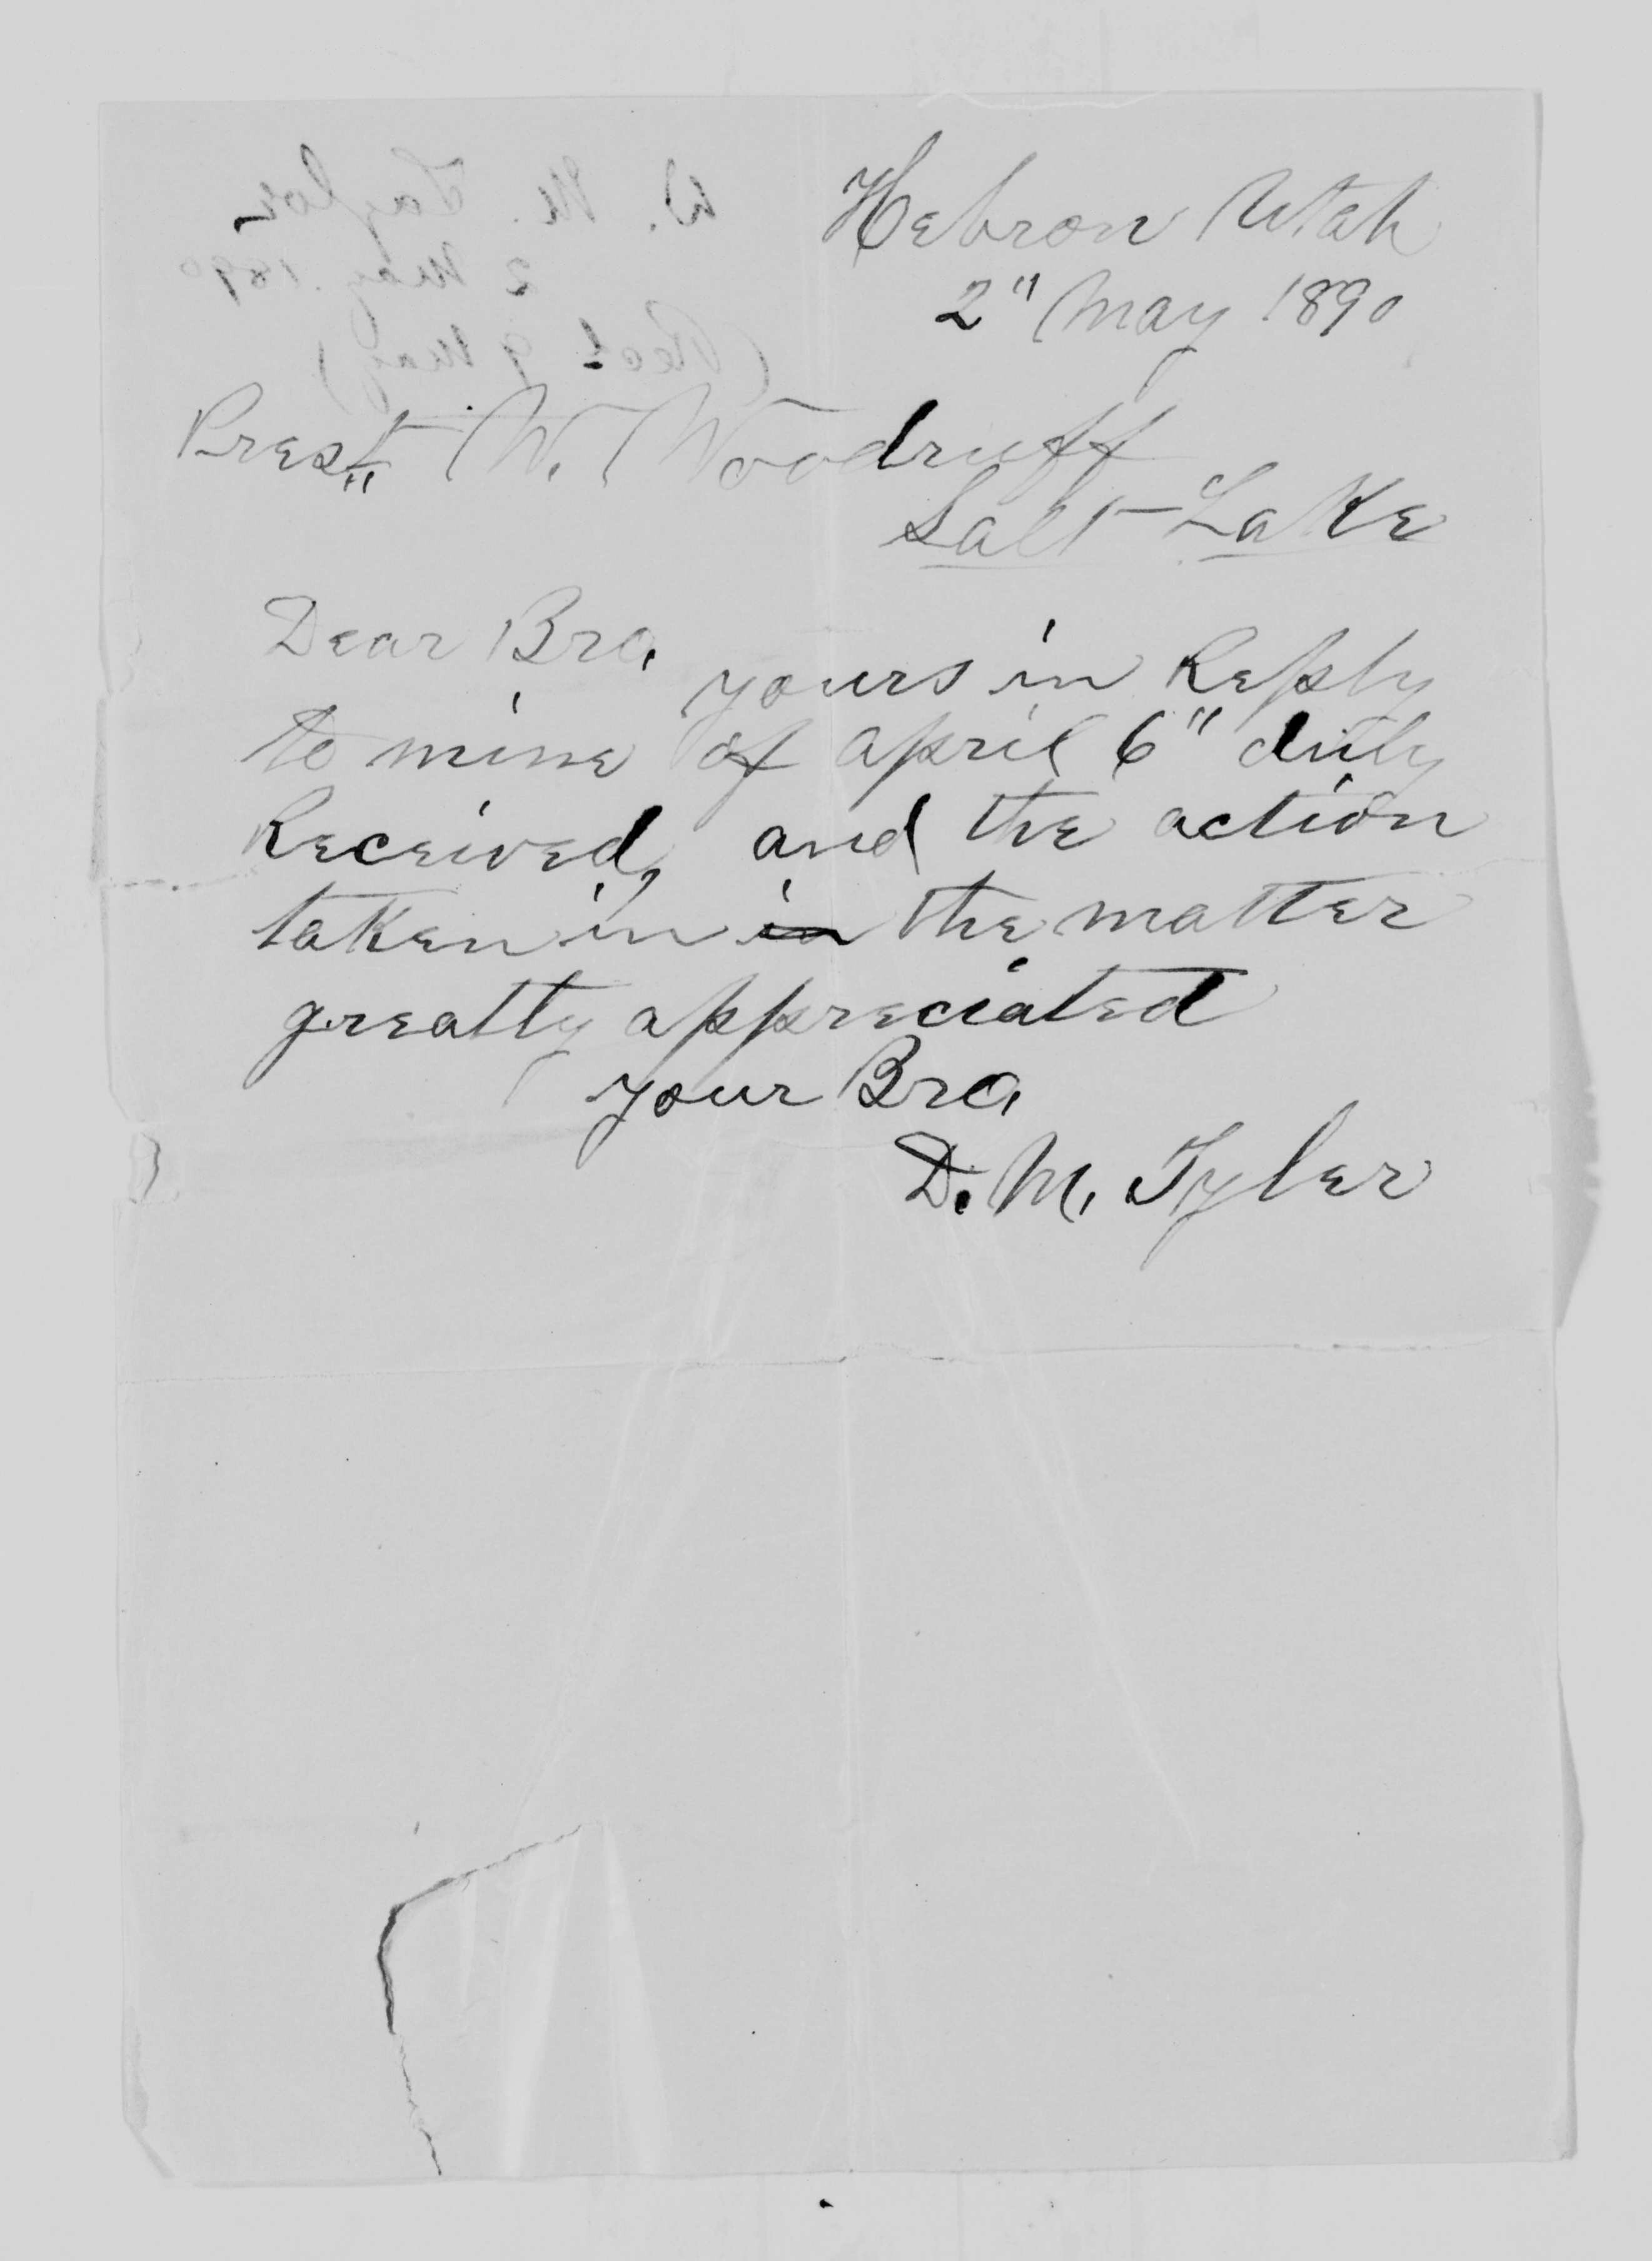 Hebron Utah
2" May 1890
Prest. W. Woodruff
Salt Lake
Dear Bro,
yours in Reply
to mine of april 6" duly
Received, and the action
taken in in the matter
greatly appreciated
your Bro,
D. M. Tyler
D. M. Taylor
2 May 1890
(Recd 9 May)